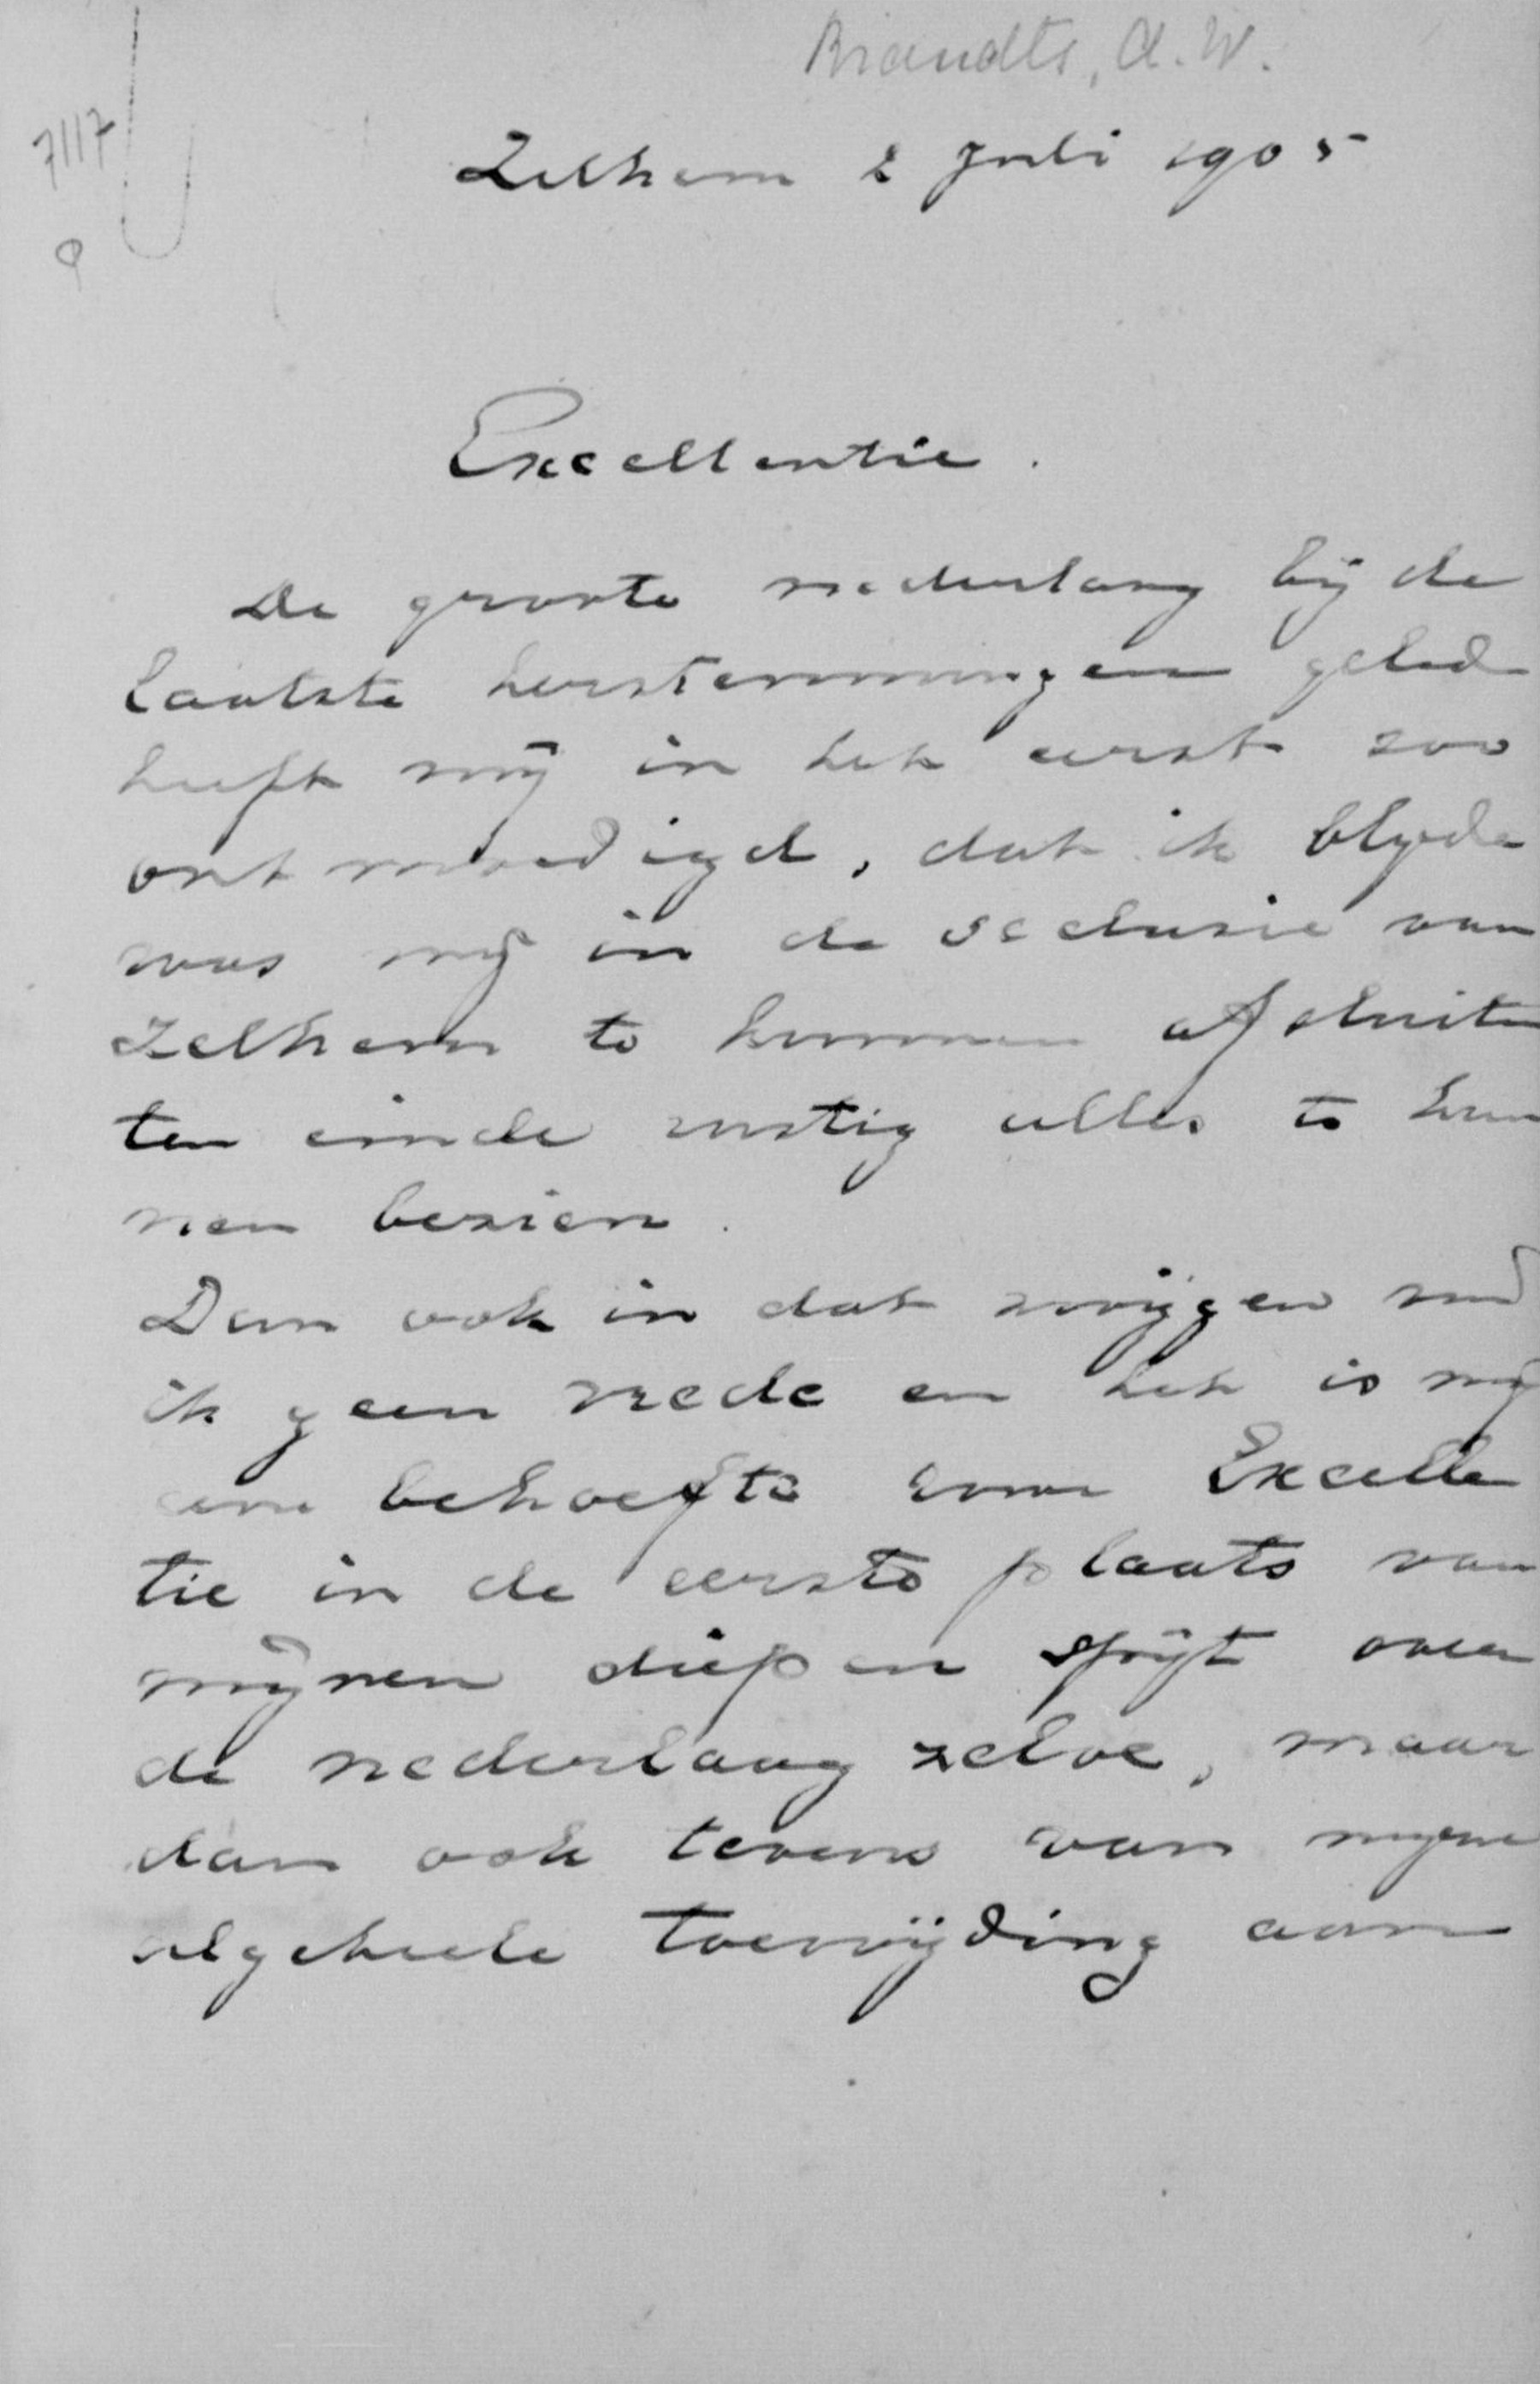 Brandts, A. W.
7117
Zelhem 2 Juli 1905
Excellentie.
De groote nederlaag bij de
laatste herstemmingen geled
heeft mij in het eerst zoo
ontmoedigd, dat ik blyde
was mij in de seclusie van
Zelhem te kunnen afsluiten
ten einde rustig alles te kun
nen bezien.
Dan ook in dat zwijgen vind
ik geen vrede en het is mij
eene behoefte Excellen
tie in de eerste plaats van
mijnen diepen spijt over
de nederlaag zelve, maar
dan ook tevens van mijne
algeheele toewijding aan